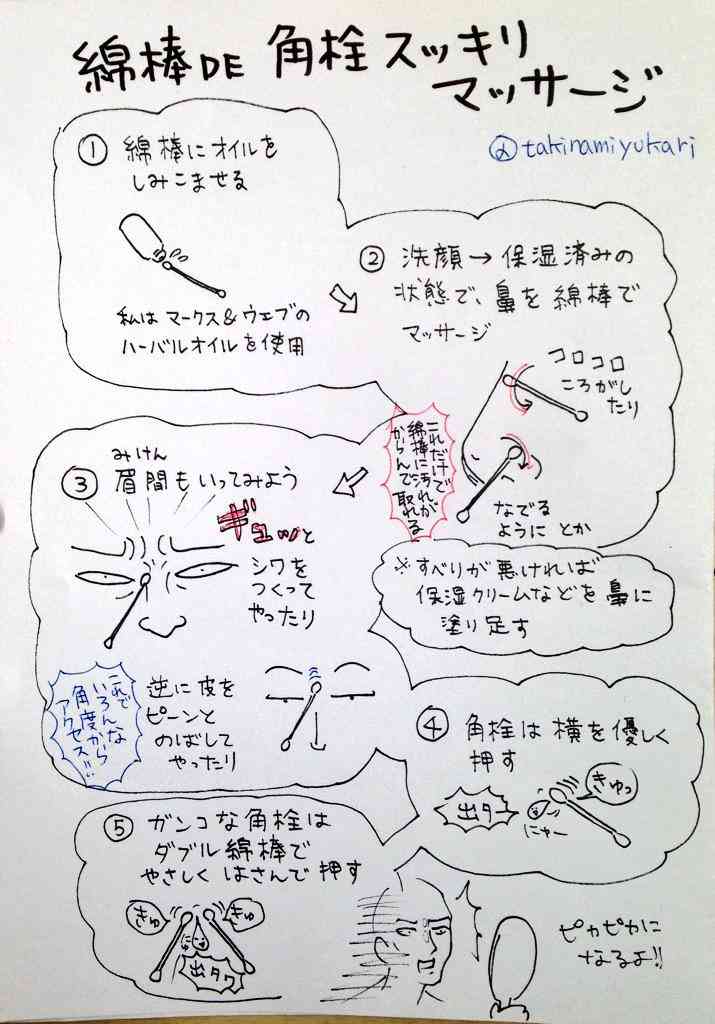 綿棒DE 角栓スッキリ
マッサージ
@takinamiyukari
① 綿棒にオイルを
しみこませる
私は マークス&ウェブの
ハーバルオイルを使用
② 洗顔→保湿済みの
状態で、鼻を綿棒で
マッサージ
コロコロ
ころがし
たり
なでる
ように とか
これだけで
綿棒に汚れが
からんで取れる
※すべりが悪ければ
保湿クリームなどを鼻に
塗り足す
みけん
③ 眉間もいってみよう
ギュッと
シワを
つくって
やったり
逆に皮を
ピーンと
のばして
やったり
これで
いろんな
角度から
アクセス!!
④ 角栓は横を優しく
押す
きゅっ
出タ
にゃー
⑤ ガンコな角栓は
ダブル綿棒で
やさしくはさんで押す
きゅ
きゅ
出タワ
ピカピカに
なるよ!!